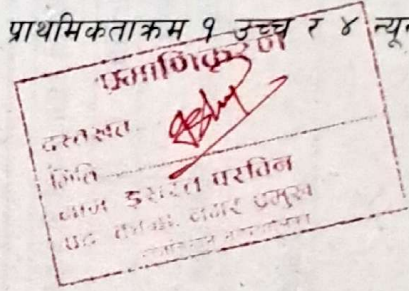 प्राथमिकताक्रम १ उच्च र ४
प्रमाणिकरण
दस्तखत
मिति
नाम इसरत परविन
पद का.बा. नगर प्रमुख